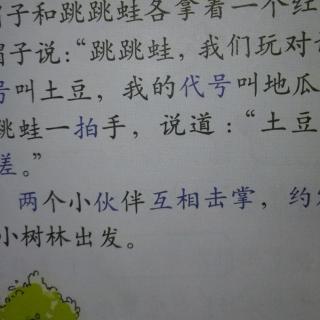 帽子和跳跳蛙各拿着一个红
帽子说：“跳跳蛙，我们玩对
号叫土豆，我的代号叫地瓜
跳蛙一拍手，说道：“土豆
搓。”
两个小伙伴互相击掌，约
小树林出发。